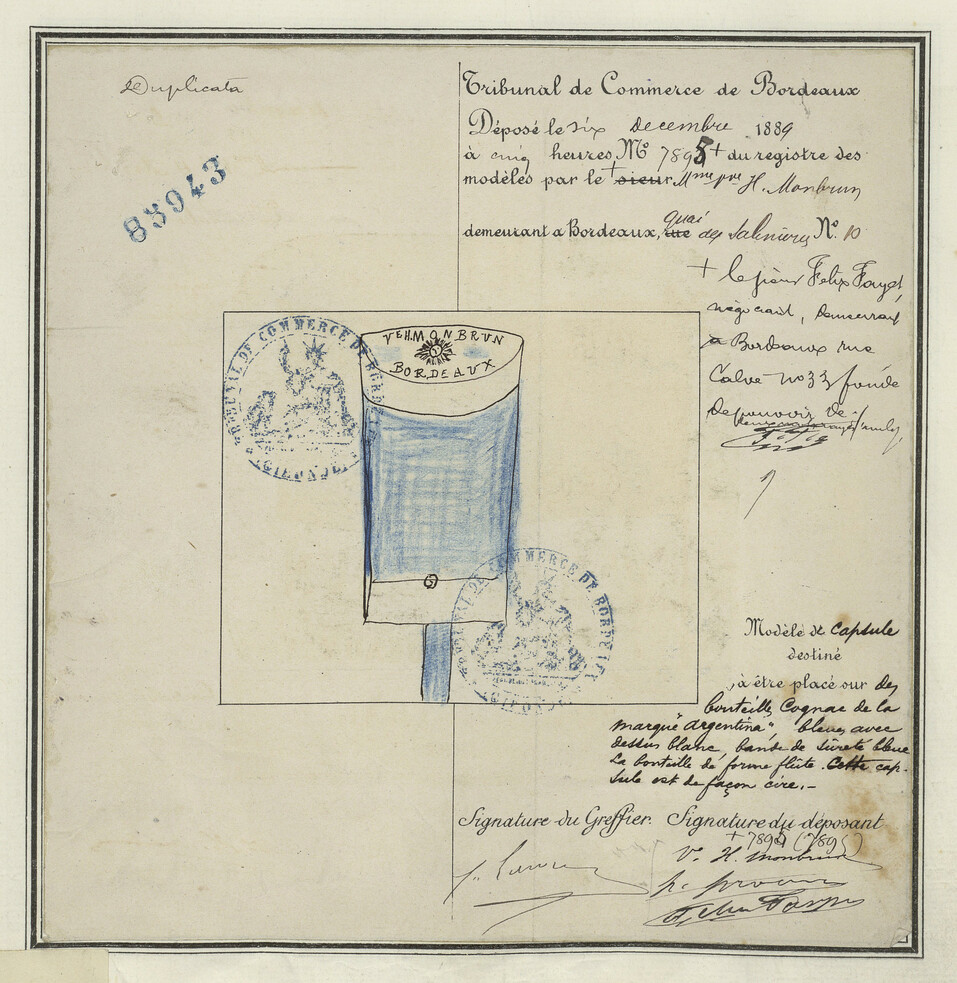 Duplicata
83943
Tribunal de Commerce de Bordeaux
Déposé le six decembre 1889
à cinq heures, N° 7895 + du registre des
modèles par le + sieur Mme Vve H. Monbrun
demeurant a Bordeaux, rue quai des Salinières N°. 10
+ le sieur Felix Fayet,
négociant, demeurant
à Bordeaux rue
Calve no 33 fondé
de pouvoir de
TRIBUNAL DE COMMERCE DE BORDEAUX
(GIRONDE)
VE H. MONBRUN
BORDEAUX
TRIBUNAL DE COMMERCE DE BORDEAUX
(GIRONDE)
Modèle de capsule
destiné
à être placé sur des
bouteilles Cognac de la
marque "Argentina", bleues avec
dessus blanc, bande de sûreté bleue
La bouteille de forme flûte. Cette cap-
sule est de façon cire.-
Signature du Greffier. Signature du déposant
+ 7895 (7895)
Ve. H. Monbrun